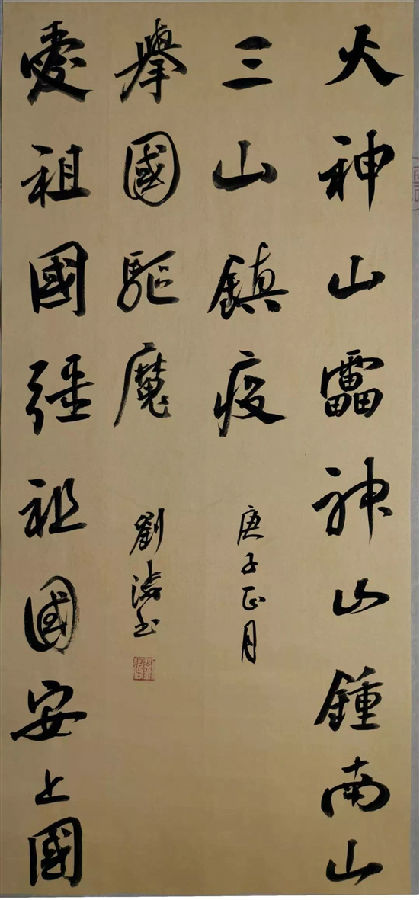 火神山靁神山鍾南山
三山鎮疫
庚子正月
愛祖國彊祖國安上國
舉國驅魔
劉濤書